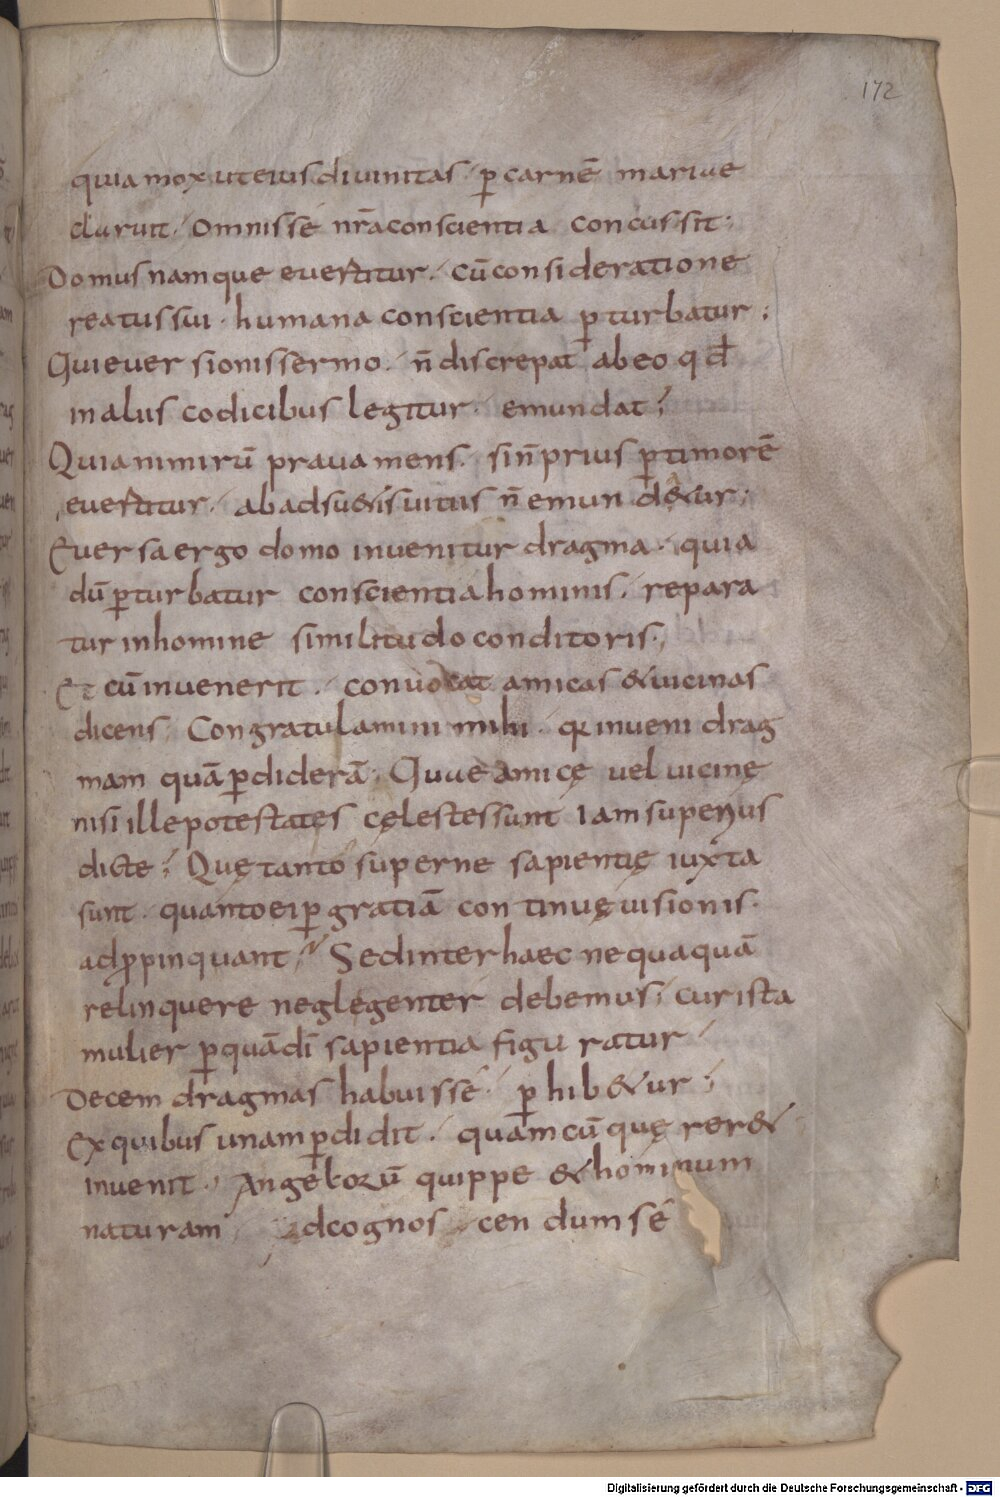 172
quia mox ut eius divinitas · ꝑ carnē marive
claruit · Omnis se nr̄a conscientia concussit ·
Domus namque evertitur · cū consideratione
reatus sui · humana conscientia ꝑturbatur ;
Qui eversionis sermo · n̄ discrepat ab eo qđ
in aliis codicibus legitur · emundat ;
Quia nimirū prava mens · si n̄ prius ꝑ timorē
evertitur · ab adsu&is vitiis n̄ emund&ur ;
Eversa ergo domo invenitur dragma · quia
dū ꝑturbatur conscientia hominis · repara
tur in homine similitudo conditoris ·
Et cū invenerit · convocat amicas & vicinas
dicens · Congratulamini mihi · qꝛ inveni drag
mam quā ꝑdiderā · Quve amicę vel vicinę
nisi ille potestates cęlestes sunt iam superius
dicte ; Quę tanto superne sapientię iuxta
sunt · quanto ei ꝑ gratiā continuę visionis ·
adꝓpinquant ; Sed inter haec nequaquā
relinquere neglegenter debemus ; cur ista
mulier ꝑ quā dī sapientia figuratur
Decem dragmas habuisse · ꝑhib&ur ;
Ex quibus unam ꝑdidit · quam cū quęrer&
invenit · Angelorū quippe & hominum
naturam adcognoscendum se
Digitalisierung gefördert durch die Deutsche Forschungsgemeinschaft - DFG